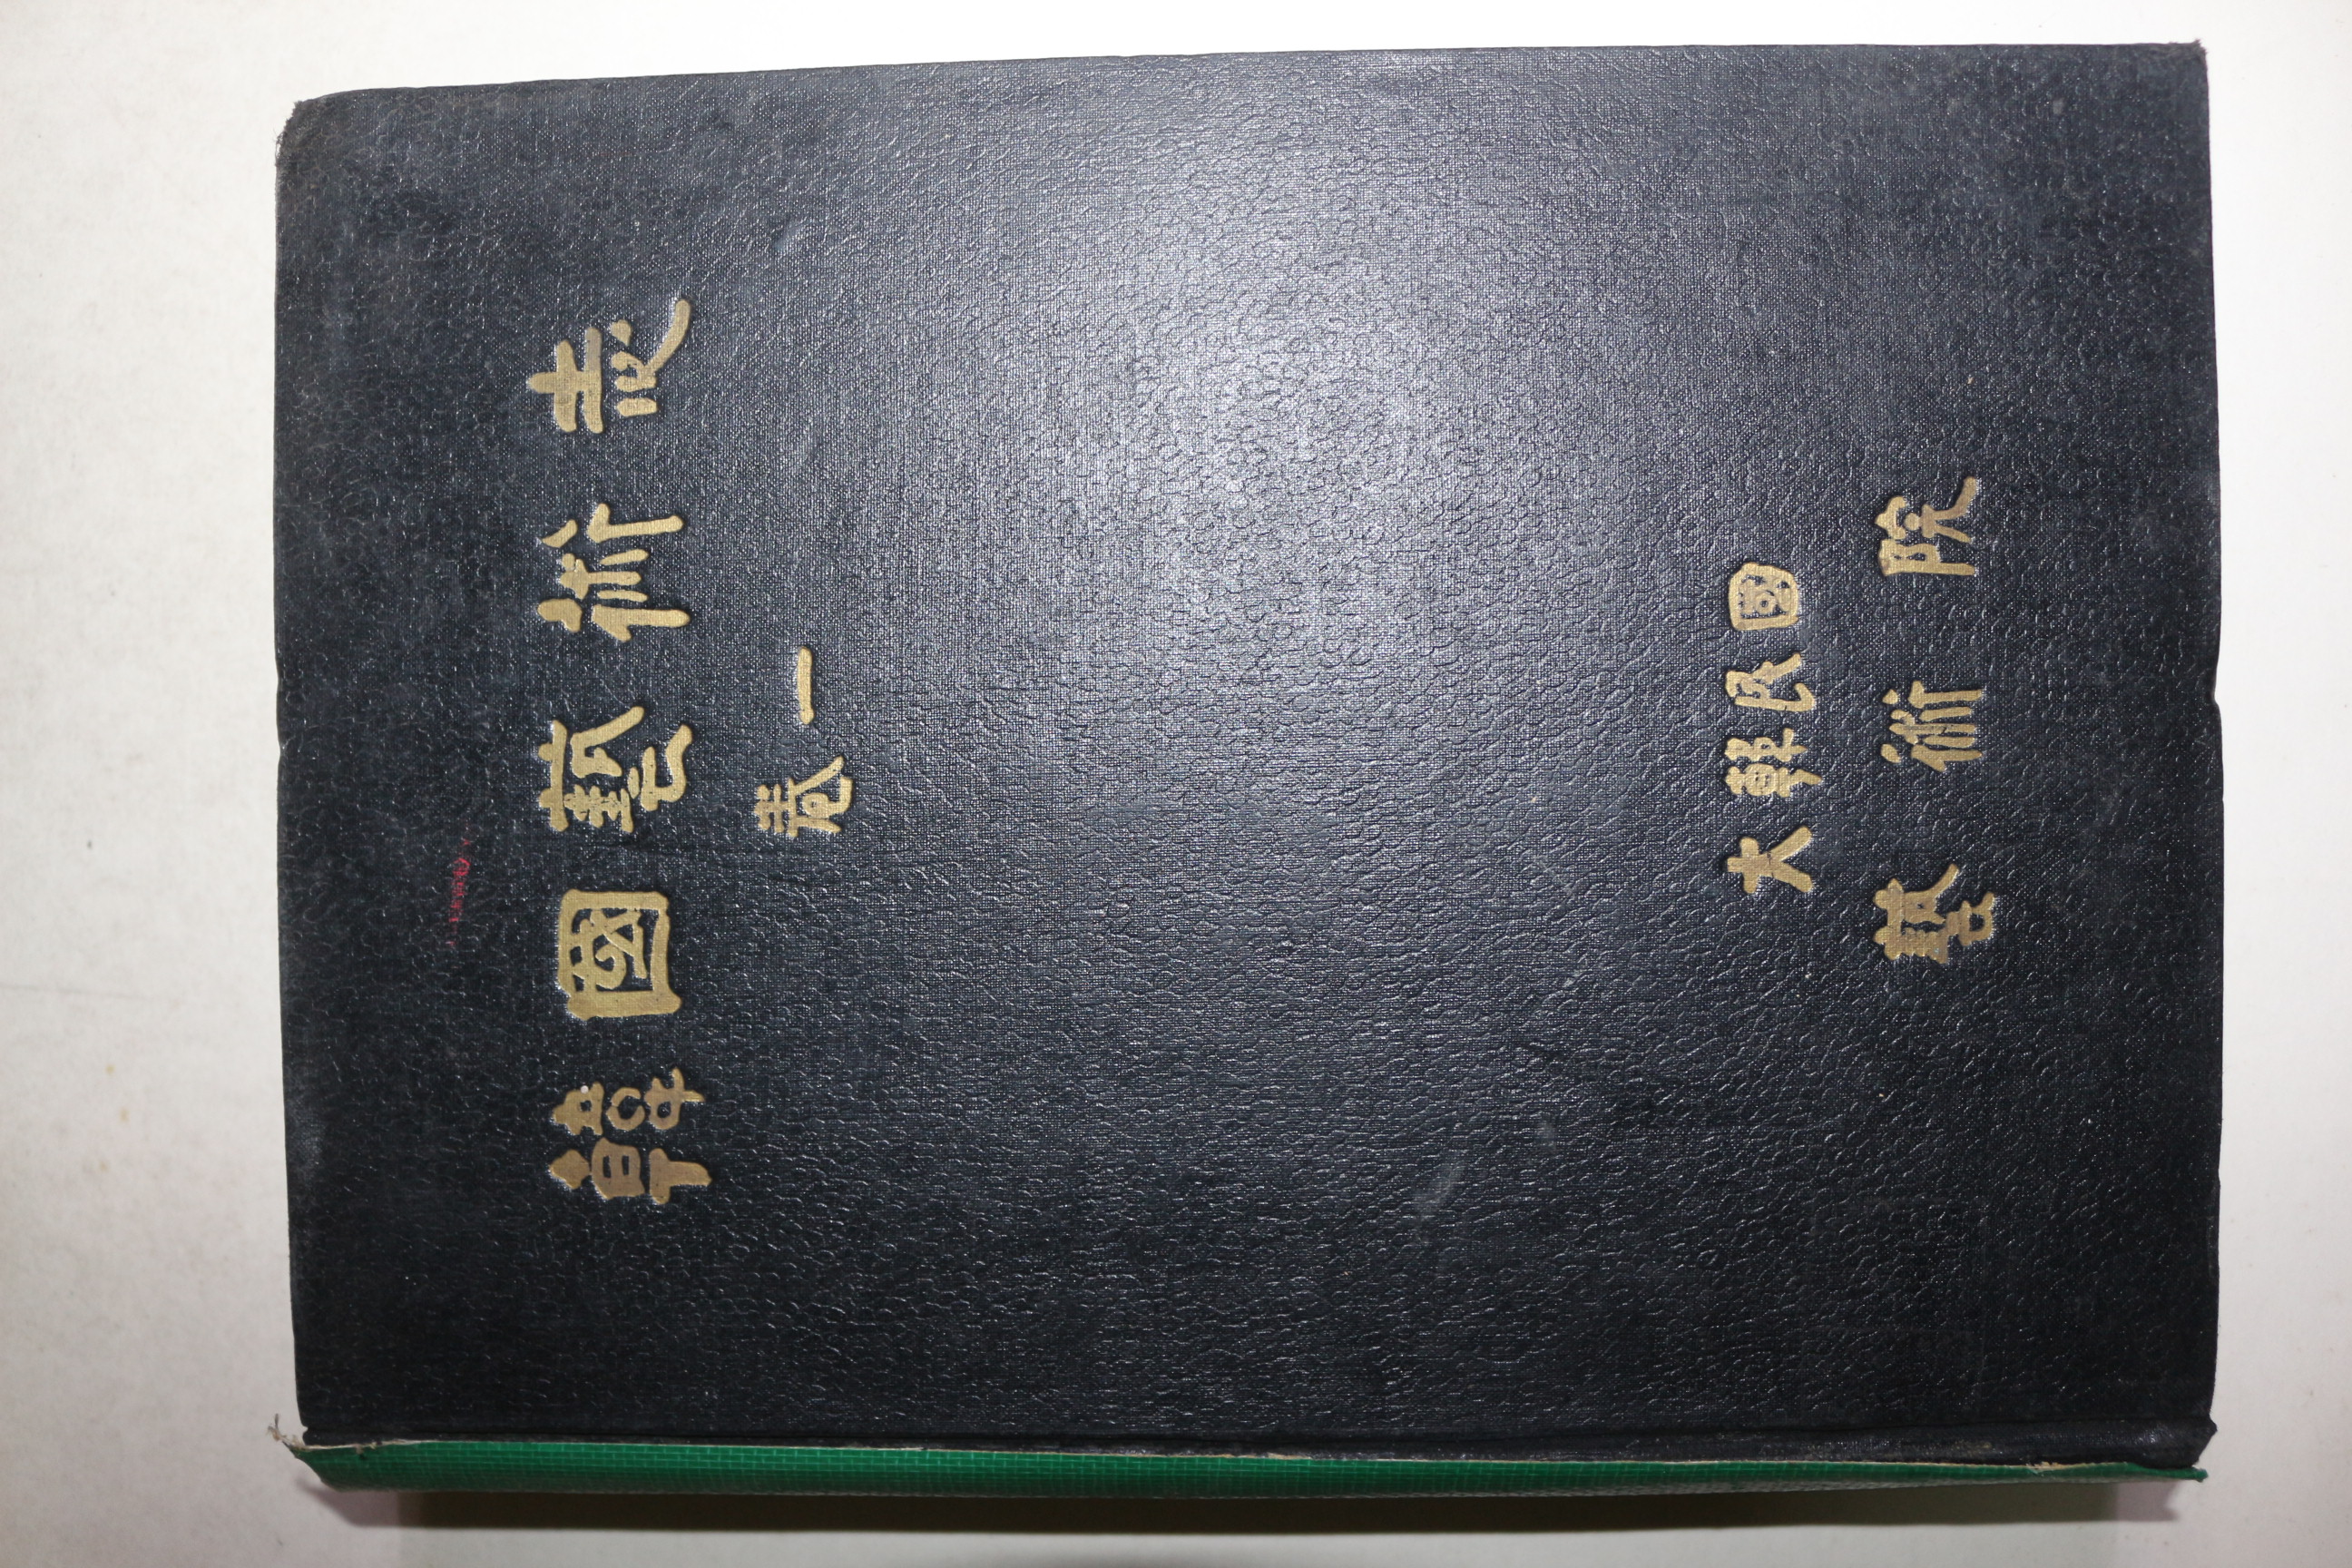 韓國藝術志
卷一
大韓民國
藝術院